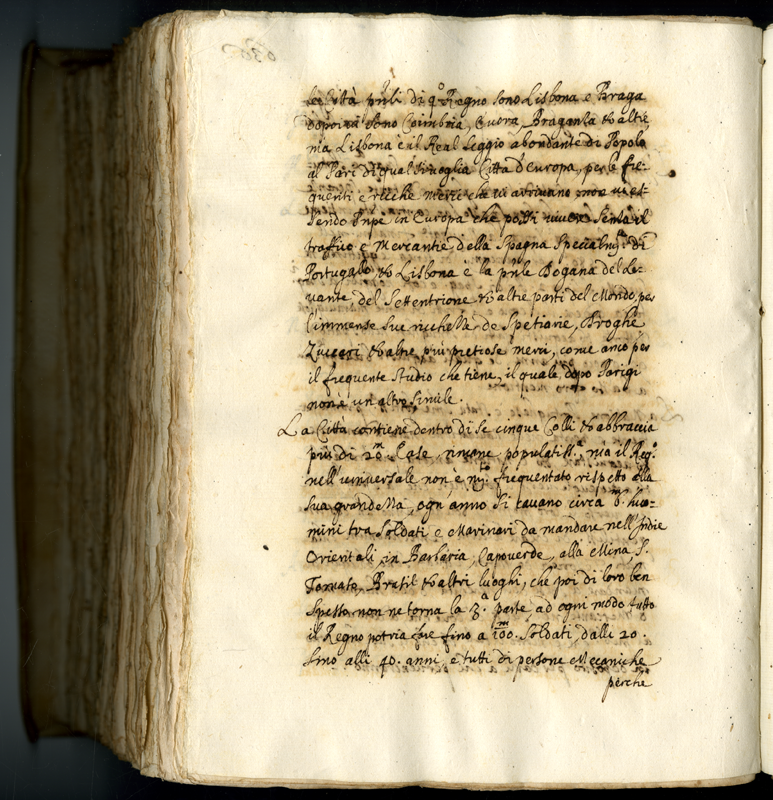 le Città pnli di q.o Regno sono Lisbona e Braga
dopoi vi sono Coimbria, Evora, Braganza et altre,
ma Lisbona è il Real Seggio abondante di Popolo
al Pari di qual si voglia Città d'Europa, per le fre=
quenti e ricche merci che vi arrivano non vi es=
sendo Pnpe in Europa che possi viver senza il
traffico e Mercantie della Spagna specialm.te di
Portugallo, et Lisbona è la pnle Dogana del Le=
vante, del Settentrione et altre parti del Mondo, per
l'immense sue ricchezze de Spetiarie, Droghe
Zuccari et altre più pretiose merci, come anco per
il frequente studio che tiene, il quale dopo Parigi
non è un altro simile.
La Città contiene dentro di se cinque Colli et abbraccia
più di 20.m Case, rimane populatiss.a, ma il Reg.o
nell'universale non è m.to frequentato rispetto alla
sua grandezza, ogn'anno si cavano circa 6.m huo=
mini tra Soldati e Marinari da mandare nell'Indie
Orientali, in Barbaria, Capoverde, alla Mina S.
Tomaso, Brasil et altri luoghi, che poi di loro ben
spesso non ne torna la 3.a parte, ad ogni modo tutto
il Regno potria fare fino a 100.m Soldati, dalli 20.
sino alli 40. anni, e tutti di persone Mecaniche
perche